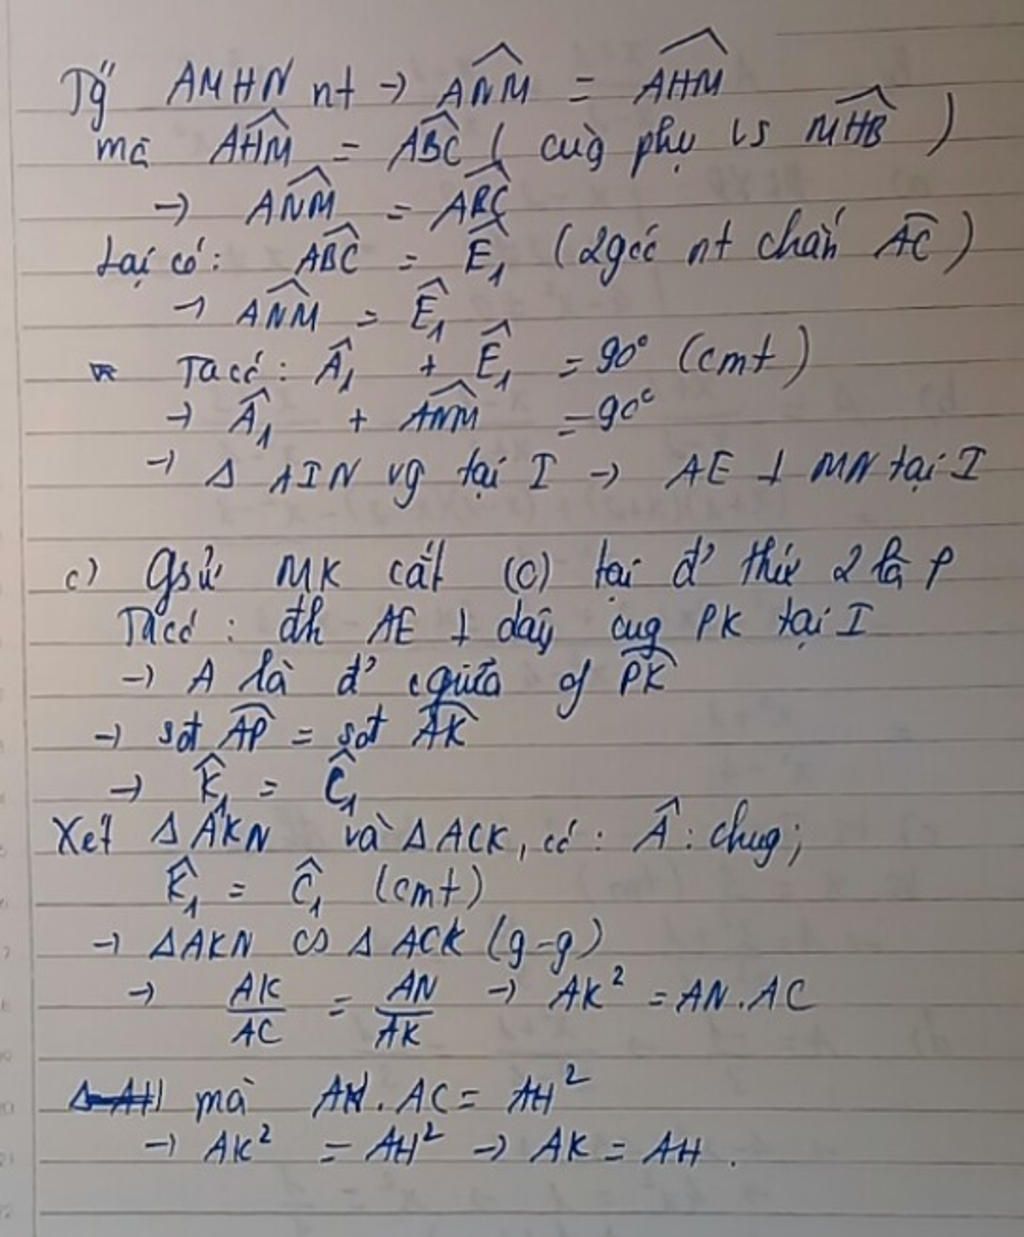 Tg AMHN nt → \widehat{ANM} = \widehat{AHM}
mà \widehat{AHM} = \widehat{ABC} ( cùg phụ vs \widehat{MHB} )
→ \widehat{ANM} = \widehat{ABC}
Lại có: \widehat{ABC} = \widehat{E}₁ (2góc nt chắn \widehat{AC})
→ \widehat{ANM} = \widehat{E}₁
Ta có: \widehat{A}₁ + \widehat{E}₁ = 90° (cmt)
→ \widehat{A}₁ + \widehat{ANM} = 90°
→ Δ AIN vg tại I → AE ⊥ MN tại I
c) Gsử MK cắt (O) tại đ' thứ 2 là P
Ta có : đk AE ⊥ dây cug PK tại I
→ A là đ' cgiữa of \widehat{PK}
→ sđt \widehat{AP} = sđt \widehat{AK}
→ \widehat{K}₁ = \widehat{C}₁
Xét Δ AKN và Δ ACK, có : \widehat{A} : chug;
\widehat{K}₁ = \widehat{C}₁ (cmt)
→ ΔAKN ∽ Δ ACK (g-g)
→ AK/AC = AN/AK → AK² = AN.AC
mà AN. AC = AH²
→ AK² = AH² → AK = AH .